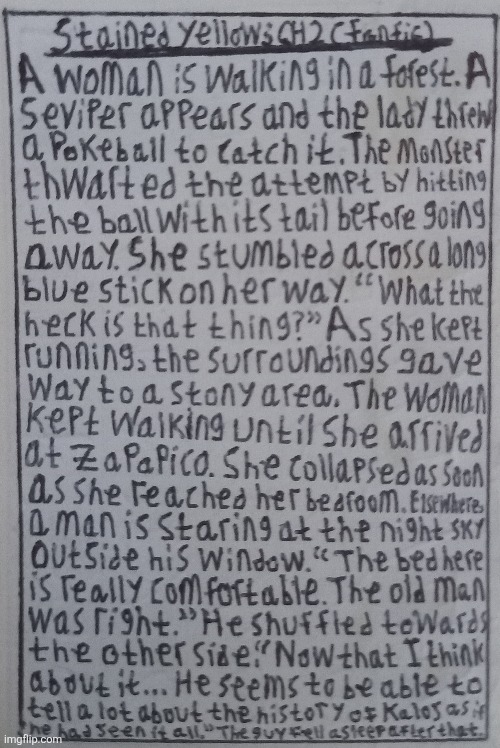 Stained Yellows CH2 (Fanfic)
A woman is walking in a forest. A
Seviper appears and the lady threw
a Pokeball to catch it. The monster
thwarted the attempt by hitting
the ball with its tail before going
away. She stumbled across a long
blue stick on her way. "What the
heck is that thing?" As she kept
running, the surroundings gave
way to a stony area. The woman
kept walking until she arrived
at Zapapico. She collapsed as soon
as she reached her bedroom. Elsewhere,
a man is staring at the night sky
outside his window. "The bed here
is really comfortable. The old man
was right." He shuffled towards
the other side. "Now that I think
about it... He seems to be able to
tell a lot about the history of Kalos as if
he had seen it all." The guy fell asleep after that.
imgflip.com